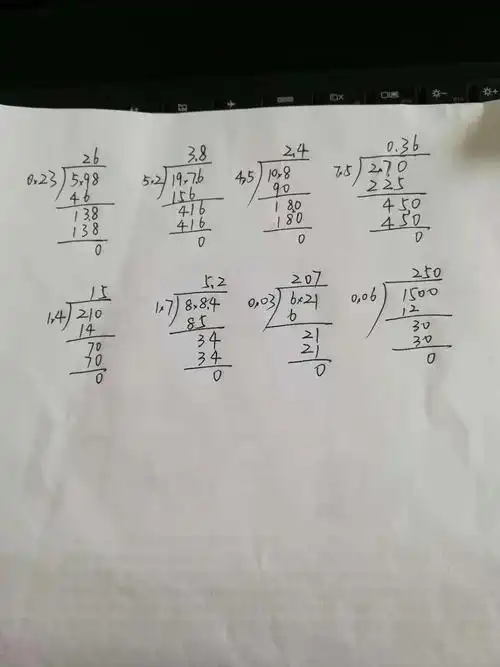 26 3.8 2.4 0.36
0.23 5.98 5.2 19.76 4.5 10.8 7.5 2.70
46 156 90 225
138 416 180 450
138 416 180 450
0 0 0 0
15 5.2 207 250
1.4 210 1.7 8.84 0.03 6.21 0.06 1500
14 85 6 12
70 34 21 30
70 34 21 30
0 0 0 0